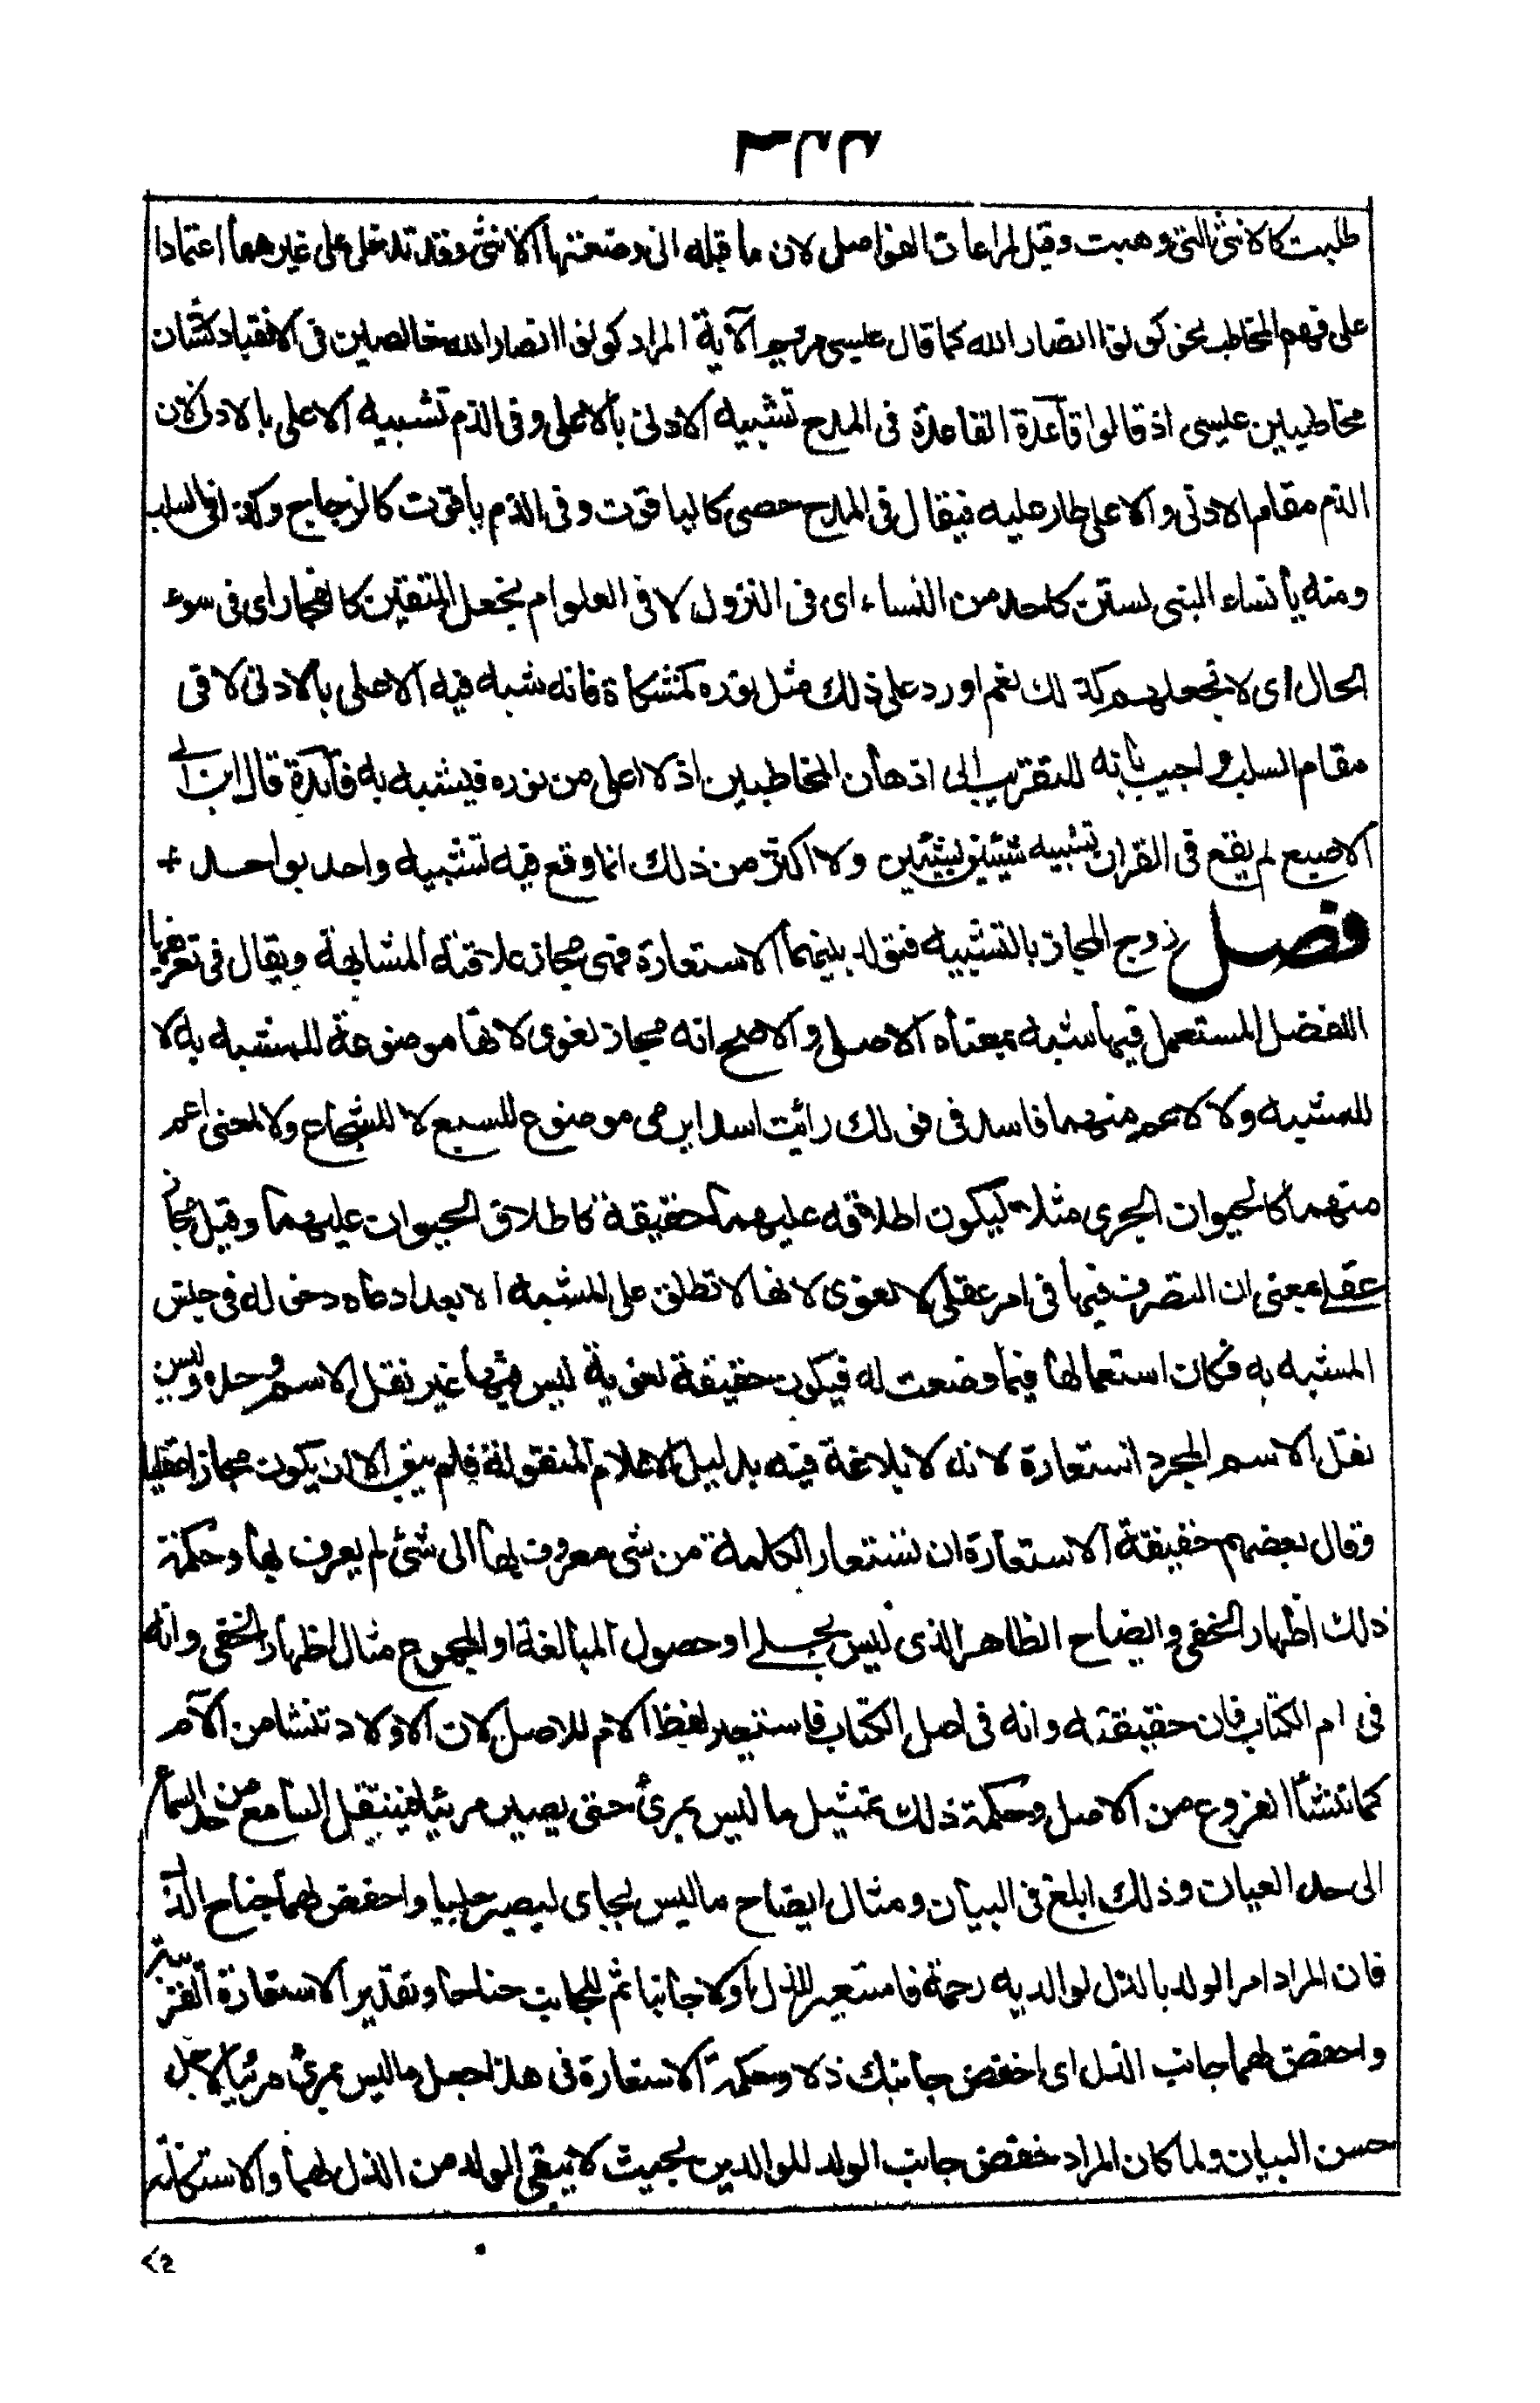 طلبت كالانثى التى وهبت وقيل لمراعات الفواصل لان ما قبله انى وضعتها الانثى وقد تدخل على غيرهما اعتمادا
على فهم المخاطب نحو كونوا انصار الله كما قال عيسى مريم الآية المراد كونوا انصار الله خالصين فى الانقياد كشان
مخاطبين عيسى اذ قالوا قاعدة القاعدة فى المدح تشبيه الادنى بالاعلى وفى الذم تشبيه الاعلى بالادنى لان
الذم مقام الادنى والاعلى طار عليه فيقال فى المدح حصى كالياقوت وفى الذم ياقوت كالزجاج وكذا فى السلب
ومنه يا نساء النبى لستن كاحد من النساء اى فى النزول لا فى العلو ام نجعل المتقين كالفجار اى فى سوء
الحال اى لا نجعلهم كذلك نعم اورد على ذلك مثل نوره كمشكاة فانه شبه فيه الاعلى بالادنى لا فى
مقام السلب واجيب بانه للتقريب الى اذهان المخاطبين اذ لا اعلى من نوره فيشبه به فائدة قال ابن ابى
الاصبع لم يقع فى القران تشبيه شيئين بشيئين ولا اكثر من ذلك انما وقع فيه تشبيه واحد بواحد
فصل زوج المجاز بالتشبيه فتولد بينهما الاستعارة فهى مجاز علاقته المشابهة ويقال فى تعريفها
اللفظ المستعمل فيما شبه بمعناه الاصلى والاصح انه مجاز لغوى لانها موضوعة للمشبه به لا
للمشبه ولا لاعم منهما فاسد فى قولك رائيت اسدا يرمى موضوع للسبع لا للشجاع ولا لمعنى اعم
منهما كالحيوان الجرى مثلا ليكون اطلاقه عليهما حقيقة كاطلاق الحيوان عليهما وقيل مجاز
عقلى بمعنى ان التصرف فيها فى امر عقلى لا لغوى لانها لا تطلق على المشبه الا بعد ادعاه دخوله فى جنس
المشبه به فكان استعمالها فيما وضعت له فيكون حقيقة لغوية ليس فيها غير نقل الاسم وحده وليس
نقل الاسم المجرد استعارة لانه لا بلاغة فيه بدليل الاعلام المنقولة فلم يبق الا ان يكون مجازا عقليا
وقال بعضهم حقيقة الاستعارة ان تستعار الكلمة من شى معروف بها الى شئ لم يعرف بها وحكمة
ذلك اظهار الخفى وايضاح الظاهر الذى ليس بجلى او حصول المبالغة او المجموع مثال اظهار الخفى وانه
فى ام الكتاب فان حقيقته وانه فى اصل الكتاب فاستعير لفظ الام للاصل لان الاولاد تنشا من الام
كما تنشأ الفروع من الاصل وحكمة ذلك تمثيل ما ليس بمرئ حتى يصير مرئيا فينتقل السامع من حد السماع
الى حد العيان وذلك ابلغ فى البيان ومثال ايضاح ما ليس بجلى ليصير جليا واخفض لهما جناح الذل
فان المراد امر الولد بالذل لوالديه رحمة فاستعير للذل اولا جانبا ثم للجانب جناحا وتقدير الاستعارة القريبة
واخفض لهما جانب الذل اى اخفض جانبك ذلا وحكمة الاستعارة فى هذا جعل ما ليس بمرئ مرئيا لاجل
حسن البيان ولما كان المراد خفض جانب الولد للوالدين بحيث لا يبقى الولد من الذل لهما والاستكانة